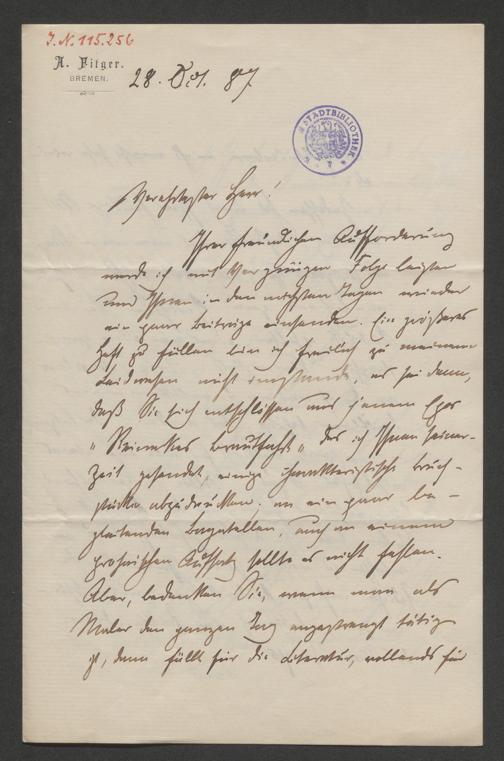 J.N. 115.256
A. Fitger.
BREMEN.
28. Oct. 87
STADTBIBLIOTHEK
Verehrtester Herr!
Ihrer freundlichen Aufforderung
werde ich mit Vergnügen Folge leisten
und Ihnen in den nächsten Tagen wieder
ein paar Beiträge einsenden. Ein größeres
Heft zu füllen bin ich freilich zu meinem
Leidwesen nicht imstande, es sei denn,
daß Sie sich entschlössen aus jenem Epos
"Reinekes Brautfahrt", das ich Ihnen seiner-
zeit gesendet, einige charakteristische Bruch-
stücke abzudrucken; an ein paar be-
gleitenden Bagatellen, auch an einem
prosaischen Aufsatz sollte es nicht fehlen.
Aber, bedenken Sie, wenn man als
Maler den ganzen Tag angestrengt tätig
ist, dann fällt für die Literatur, vollends für